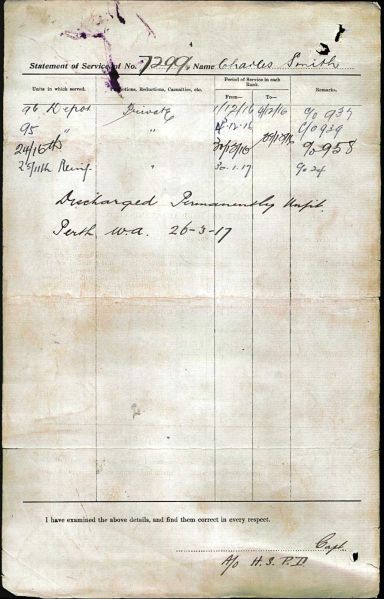 4
Statement of Service of No. 7299, Name Charles Smith
Units in which served. Promotions, Reductions, Casualties, etc. Period of Service in each Rank. From— To— Remarks.
96 Depot Private 1/12/16 4/12/16 %937
95 " " 4-12-16 %939
24/16th %958
25/11th Reinf. " 30.1.17 %24
Discharged Permanently Unfit.
Perth W.A. 26-3-17
I have examined the above details, and find them correct in every respect.
Capt.
A/O H.S.P.D.